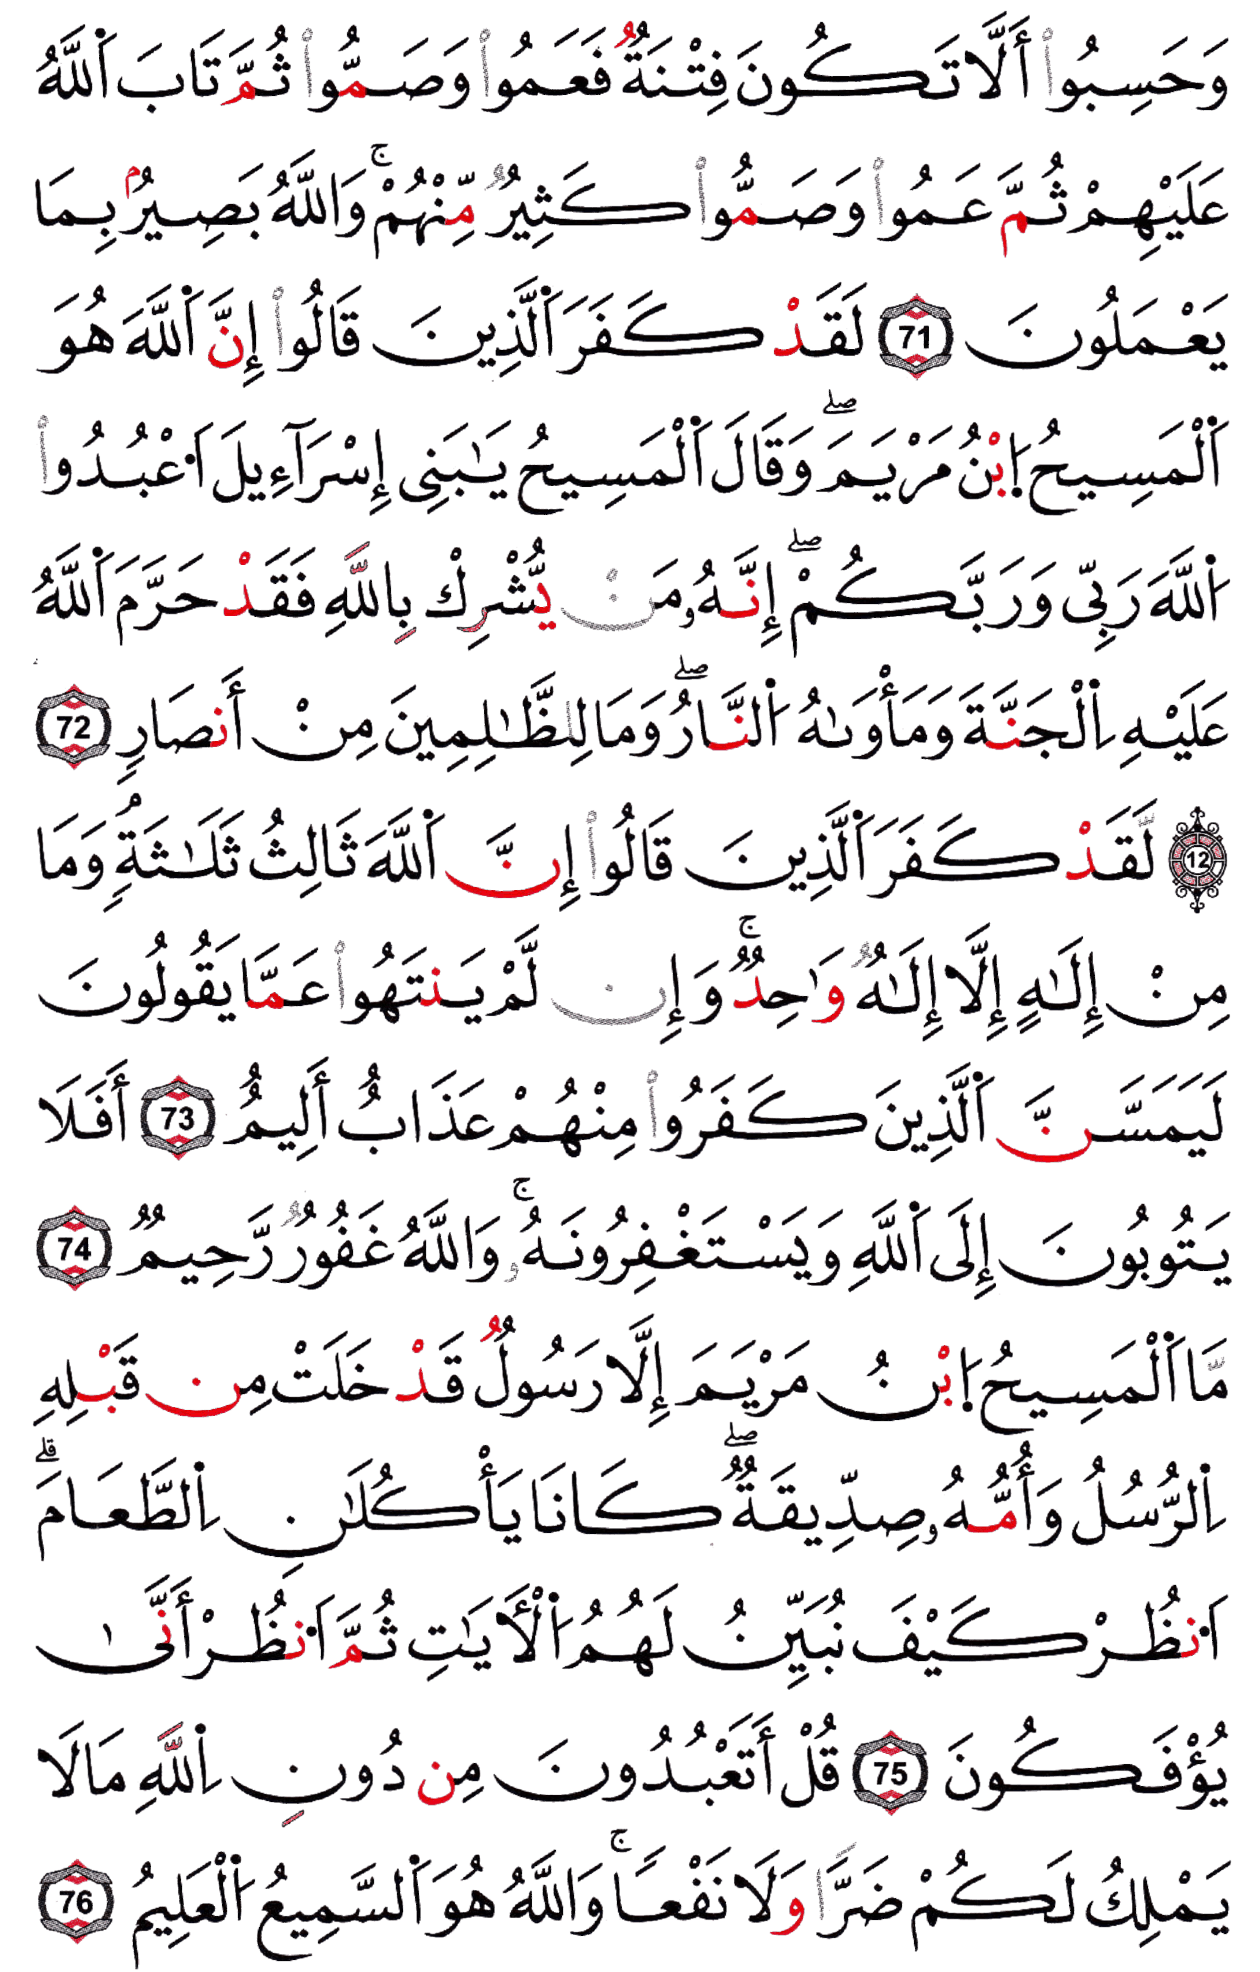 وَحَسِبُوا۟ أَلَّا تَكُونَ فِتْنَةٌ فَعَمُوا۟ وَصَمُّوا۟ ثُمَّ تَابَ اَ۬للَّهُ
عَلَيْهِمْ ثُمَّ عَمُوا۟ وَصَمُّوا۟ كَثِيرٌ مِّنْهُمْۚ وَاللَّهُ بَصِيرُۢ بِمَا
يَعْمَلُونَ 71 لَقَدْ كَفَرَ اَ۬لَّذِينَ قَالُوا۟ إِنَّ اَ۬للَّهَ هُوَ
اَ۬لْمَسِيحُ اُ۪بْنُ مَرْيَمَۖ وَقَالَ اَ۬لْمَسِيحُ يَٰبَنِى إِسْرَآءِيلَ اَ۟عْبُدُوا۟
اَ۬للَّهَ رَبِّى وَرَبَّكُمْۖ إِنَّهُۥ مَنْ يُّشْرِكْ بِاللَّهِ فَقَدْ حَرَّمَ اَ۬للَّهُ
عَلَيْهِ اِ۬لْجَنَّةَ وَمَأْوَىٰهُ اُ۬لنَّارُۖ وَمَا لِلظَّٰلِمِينَ مِنْ أَنصَارٍ 72
12 لَّقَدْ كَفَرَ اَ۬لَّذِينَ قَالُوا۟ إِنَّ اَ۬للَّهَ ثَالِثُ ثَلَٰثَةٍۘ وَمَا
مِنْ إِلَٰهٍ إِلَّا إِلَٰهٌ وَٰحِدٌۚ وَإِن لَّمْ يَنتَهُوا۟ عَمَّا يَقُولُونَ
لَيَمَسَّنَّ اَ۬لَّذِينَ كَفَرُوا۟ مِنْهُمْ عَذَابٌ أَلِيمٌ 73 أَفَلَا
يَتُوبُونَ إِلَى اَ۬للَّهِ وَيَسْتَغْفِرُونَهُۥۚ وَاللَّهُ غَفُورٌ رَّحِيمٌ 74
مَّا اَ۬لْمَسِيحُ اُ۪بْنُ مَرْيَمَ إِلَّا رَسُولٌ قَدْ خَلَتْ مِن قَبْلِهِ
اِ۬لرُّسُلُ وَأُمُّهُۥ صِدِّيقَةٌۖ كَانَا يَأْكُلَٰنِ اِ۬لطَّعَامَۗ
اَ۟نظُرْ كَيْفَ نُبَيِّنُ لَهُمُ اُ۬لْأَيَٰتِ ثُمَّ اَ۟نظُرْ أَنَّىٰ
يُؤْفَكُونَ 75 قُلْ أَتَعْبُدُونَ مِن دُونِ اِ۬للَّهِ مَا لَا
يَمْلِكُ لَكُمْ ضَرًّا وَلَا نَفْعًاۚ وَاللَّهُ هُوَ اَ۬لسَّمِيعُ اُ۬لْعَلِيمُ 76